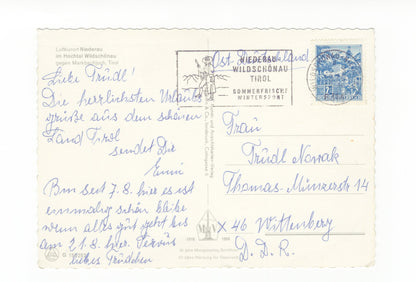 Luftkurort Niederau
im Hochtal Wildschönau
gegen Markbachjoch, Tirol
Liebe Trudl!
Die herrlichsten Urlaubs
grüße aus dem schönen
Land Tirol
sendet Die
Emmi
Bin seit 7.8. hier es ist
einmalig schön bleibe
wenn alles gut geht bis
am 21.8. hier. Servus
liebes Trudchen
NIEDERAU
WILDSCHÖNAU
TIROL
SOMMERFRISCHE
WINTERSPORT
Ost. Deutschland
Frau
Trudl Nowak
Thomas-Münzerstr 14
X 46 Wittenberg
D.D.R.